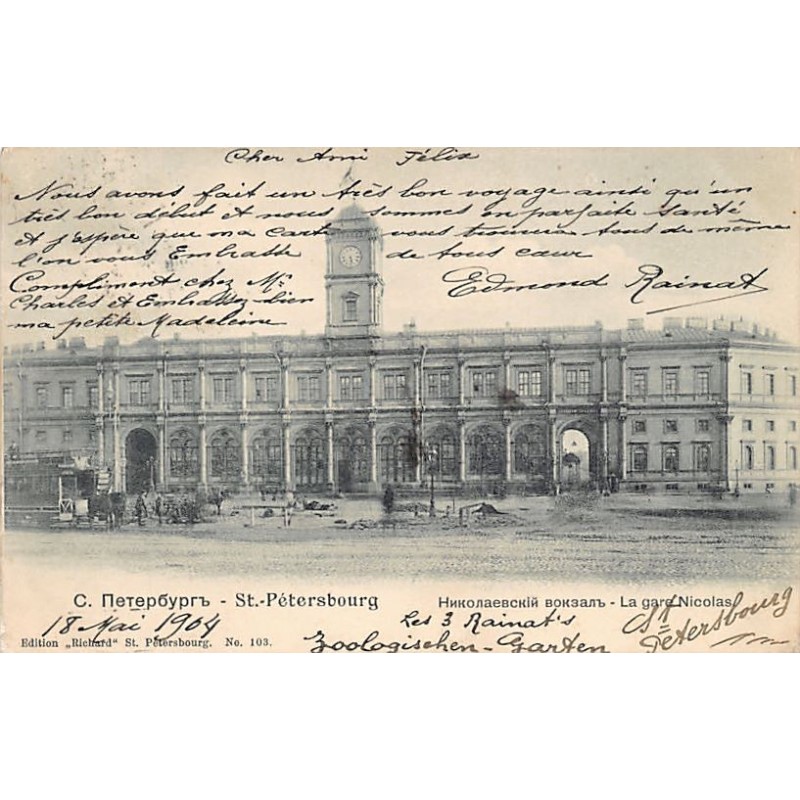 Cher Ami Félix
Nous avons fait un très bon voyage ainsi qu'un
très bon début et nous sommes en parfaite santé
et j'espère que ma carte vous trouvera tous de même
l'on vous Embrasse de tous cœur
Compliment chez Mr
Charles et Embrassez bien
ma petite Madeleine
Edmond Rainat
С. Петербургъ - St.-Pétersbourg
Николаевскій вокзалъ - La gare Nicolas
18 Mai 1904
Les 3 Rainat's
St Pétersbourg
Edition „Richard" St. Pétersbourg. No. 103.
Zoologischen-Garten